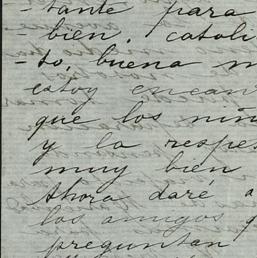 - tante para
- bien, catoli
- to, buena m
estoy encan
que los niñ
y la respe
muy bien
Ahora daré a
los amigos q
preguntan